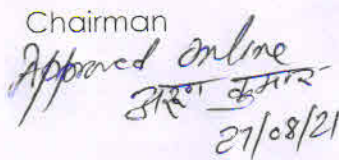 Chairman
Approved online
अरुण कुमार
27/08/21